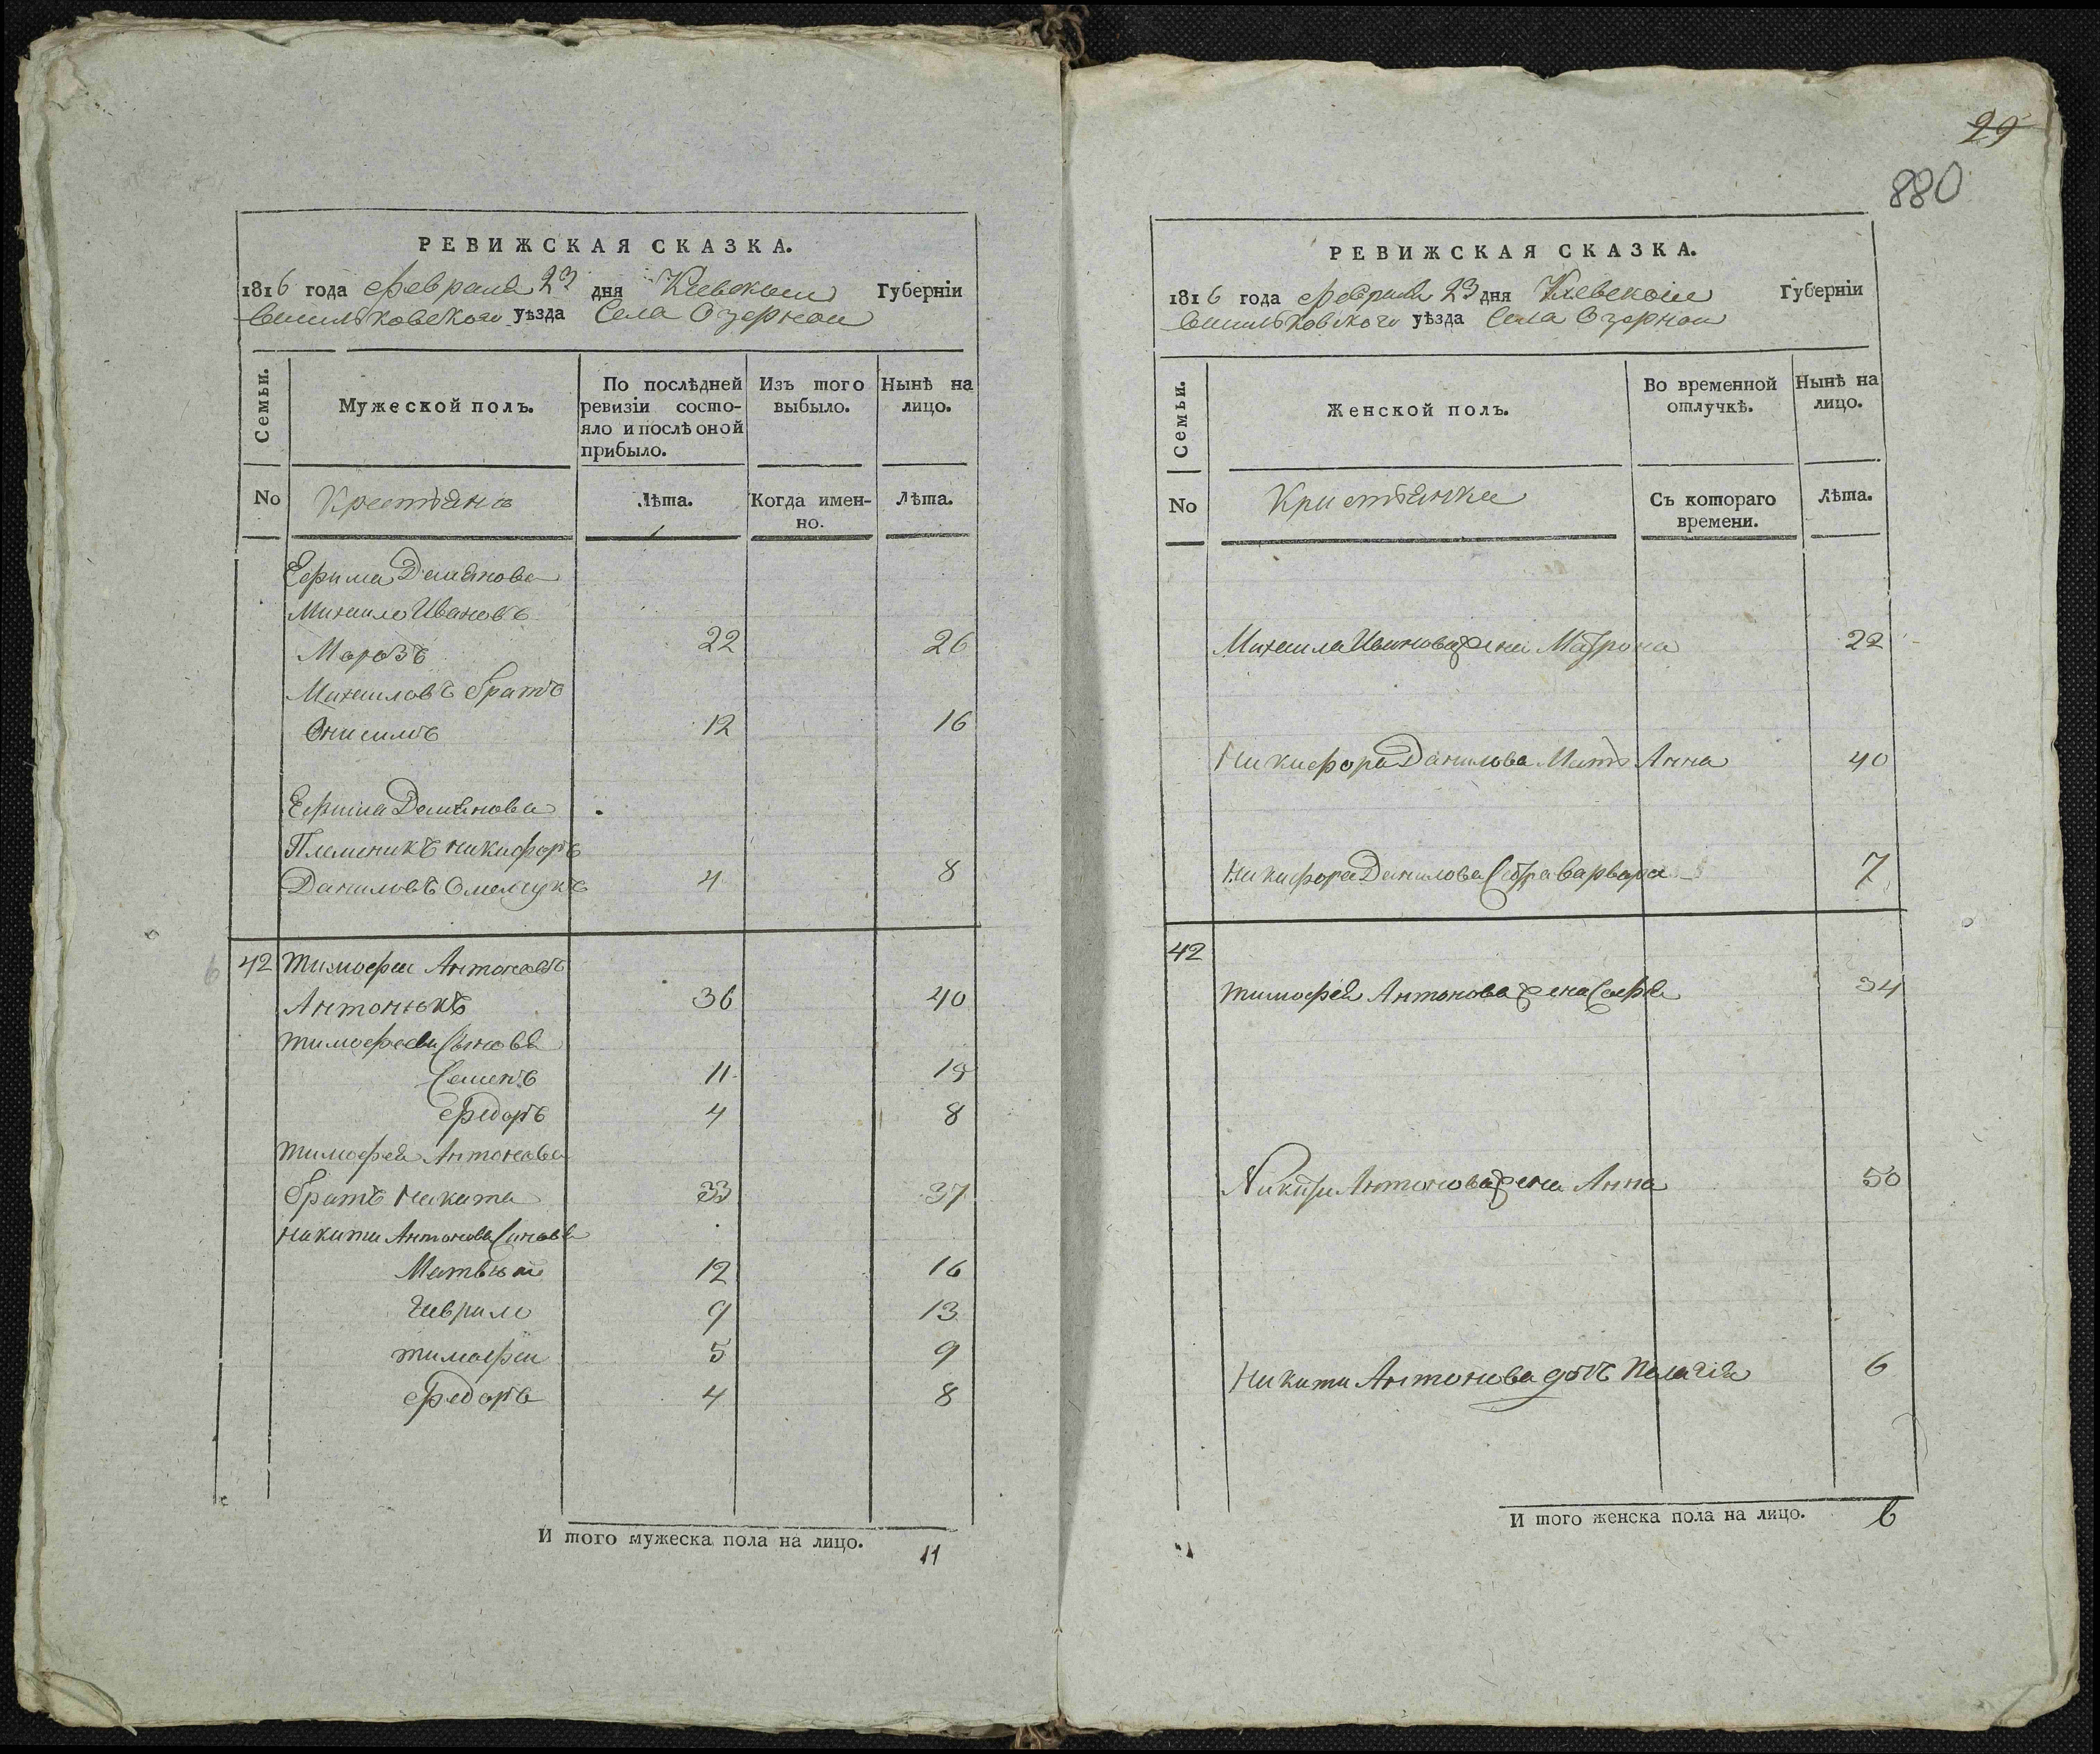 РЕВИЖСКАЯ СКАЗКА.
1816 года Февраля 23 дня Киевской Губерніи
Васильковского уѣзда Села Озерной
Семьи.
Мужеской полъ.
По послѣдней ревизіи состояло и послѣ оной прибыло.
Изъ того выбыло.
Нынѣ на лицо.
No Крестьяне Лѣта. Когда именно. Лѣта.
Ефима Демянова
Михаило Ивановъ
Морозъ 22 26
Михаиловъ братъ
Онисимъ 12 16
Ефима Демянова
Племеникъ Никифоръ
Даниловъ Омелчукъ 4 8
42 Тимофей Антоновъ
Антонюкъ 36 40
Тимофееви Сыновя
Семенъ 11 15
Федоръ 4 8
Тимофея Антонова
братъ Никита 33 37
Никити Антонова Синовя
Матвѣй 12 16
Гаврило 9 13
Тимофей 5 9
Федоръ 4 8
И того мужеска пола на лицо. 11
29
880
РЕВИЖСКАЯ СКАЗКА.
1816 года Февраля 23 дня Киевской Губерніи
Васильковского уѣзда Села Озерной
Семьи.
Женской полъ.
Во временной отлучкѣ.
Нынѣ на лицо.
No Кристьянки Съ котораго времени. Лѣта.
Михаила Иванова жена Матрона 22
Никифора Данилова Мать Анна 40
Никифора Данилова Сестра Варвара 7
42
Тимофея Антонова жена Софя 34
Никити Антонова жена Анна 30
Никити Антонова дочъ Пелагія 6
И того женска пола на лицо. 6